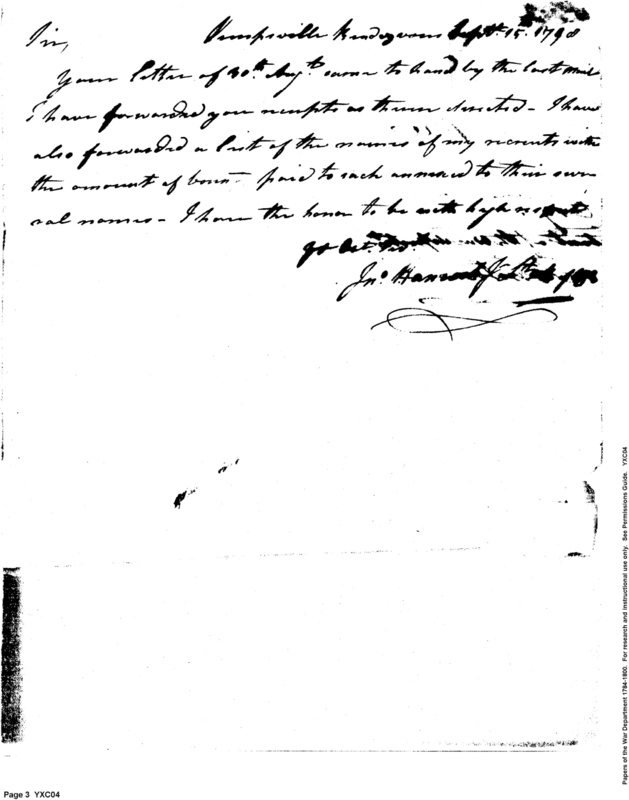 Sir, Kempsville Rendezvous Sept. 15th. 1798
Your letter of 30th. Augt. came to hand by the last mail
I have forwarded you receipts as therein directed - I have
also forwarded a list of the names of my recruits with
the amount of bounty paid to each annexed to their seve-
ral names - I have the honor to be with high respect
yr Obt. Servt.
Jno. Lt.
Page 3 YXC04
Papers of the War Department 1784-1800. For research and instructional use only. See Permissions Guide. YXC04